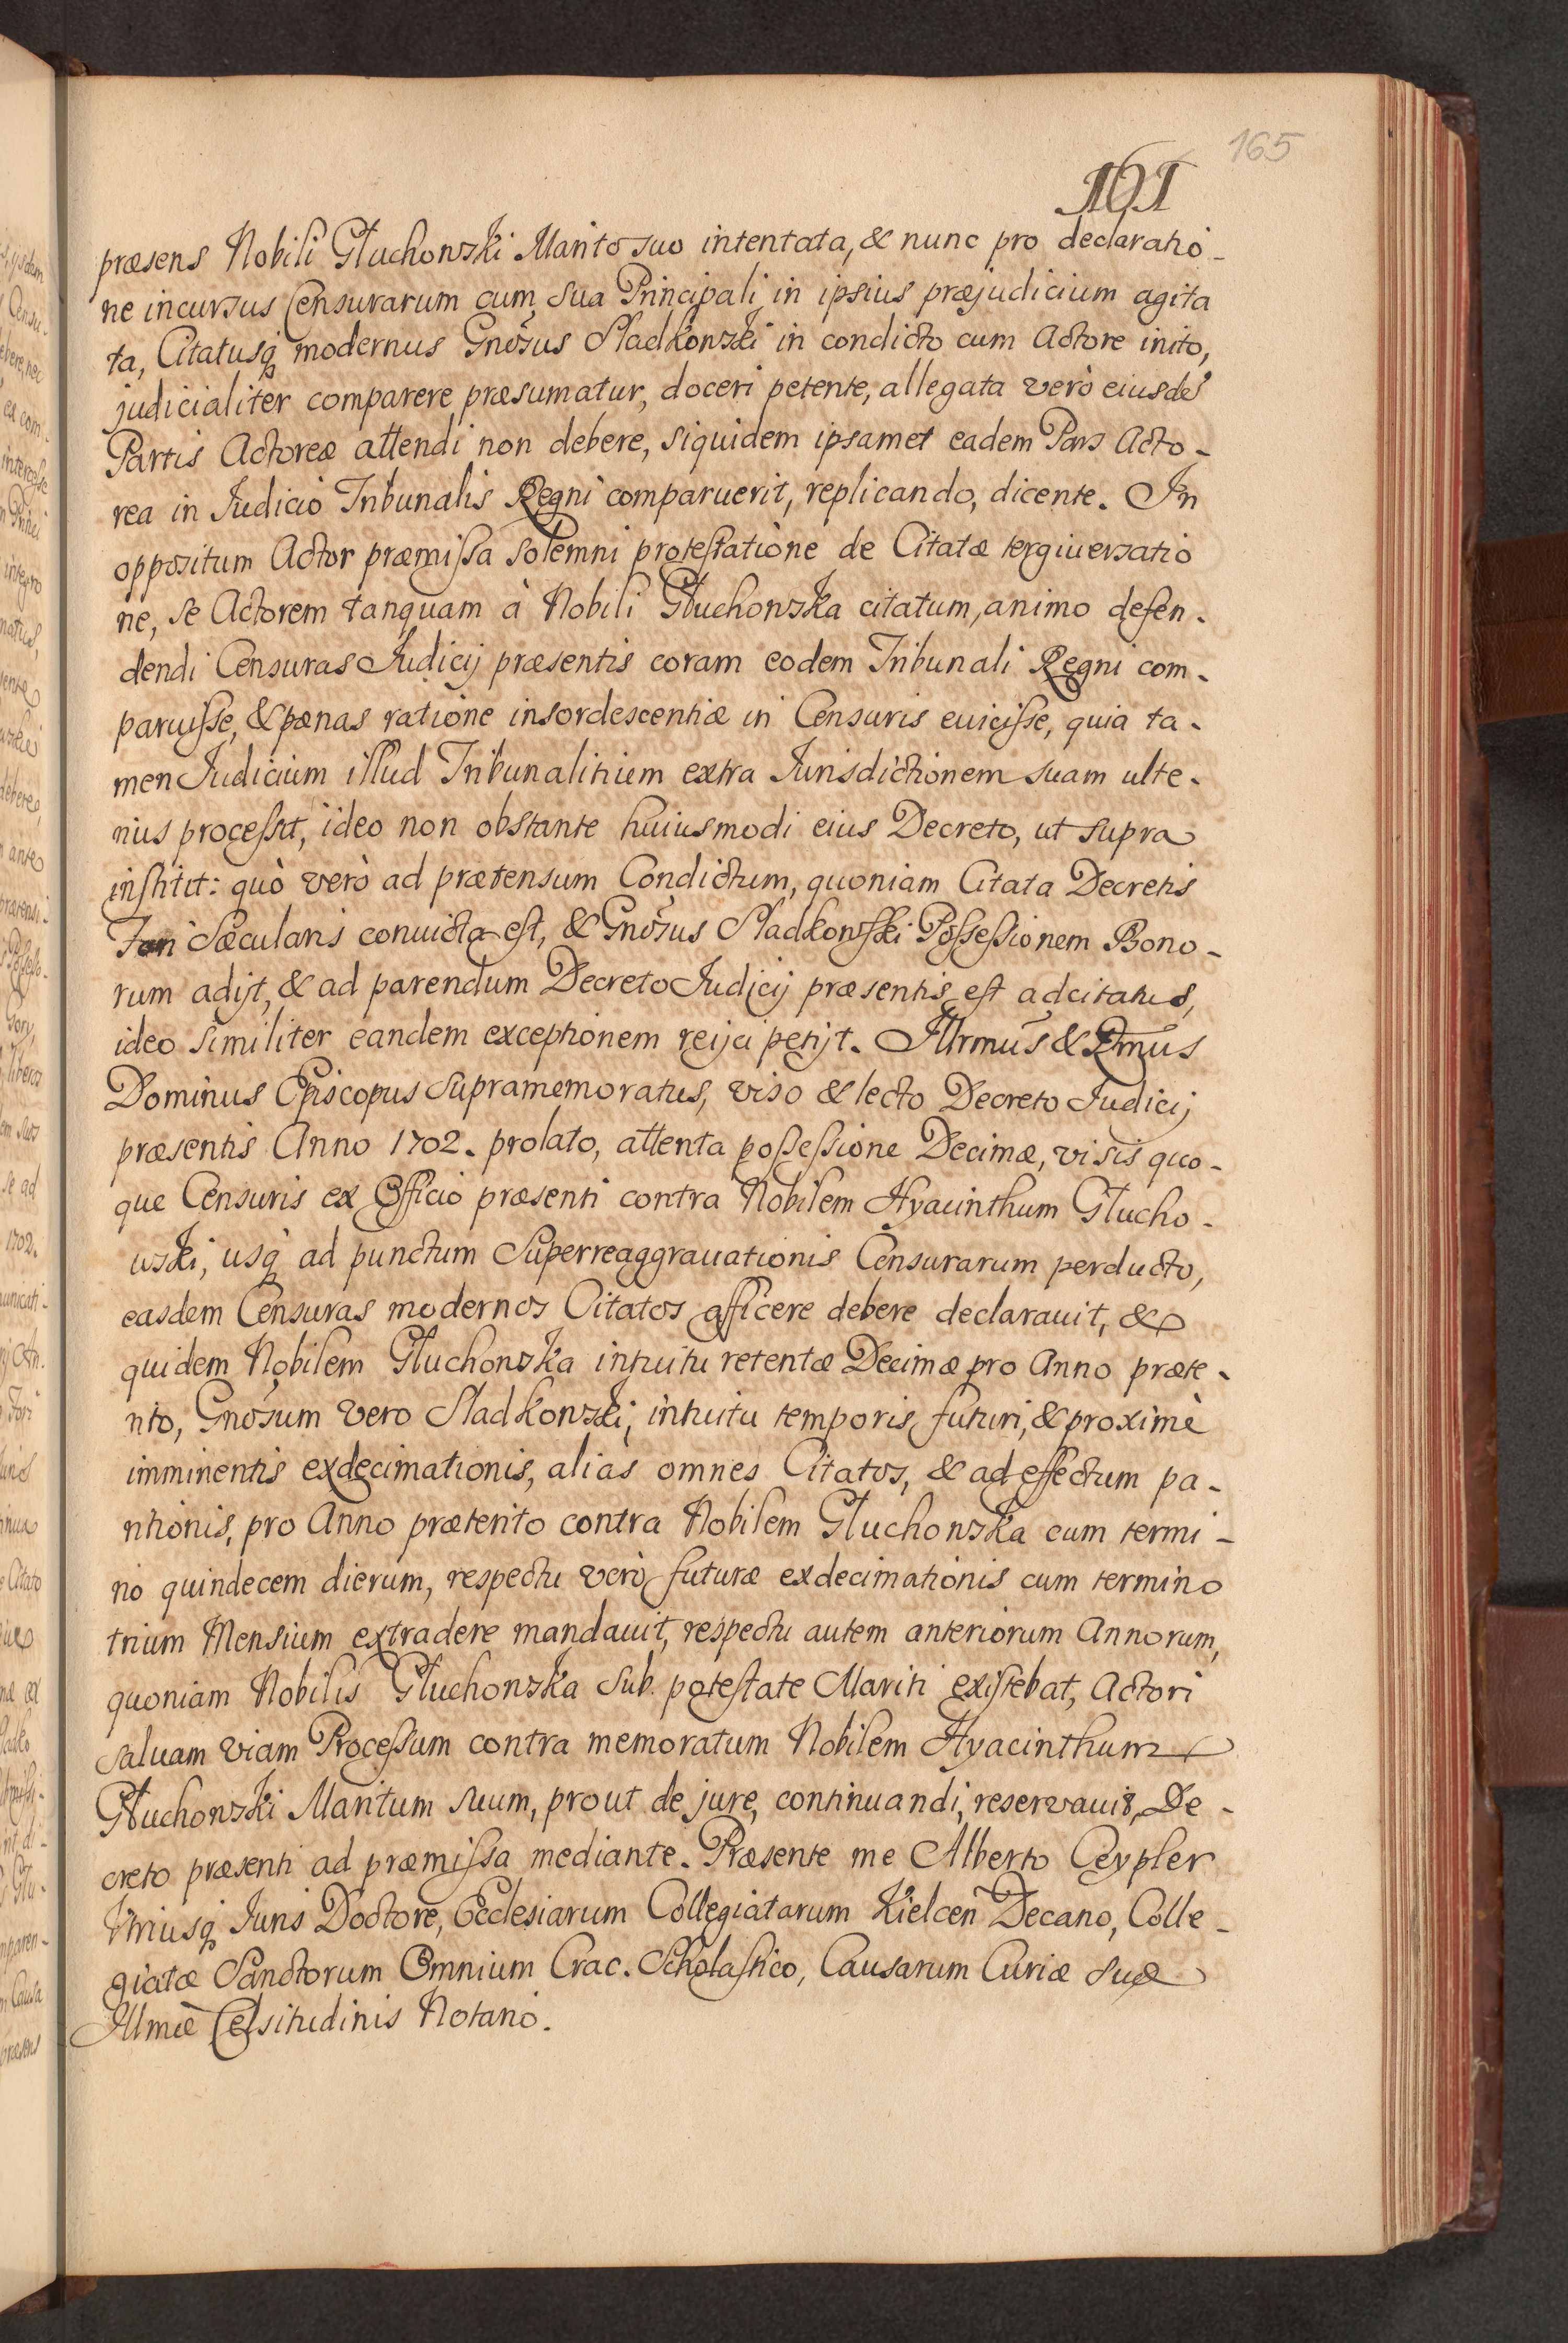 165
161
præsens Nobili Głuchowski Marito suo intentata, & nunc pro declaratio-
ne incursus Censurarum cum sua Principali in ipsius præjudicium agita
ta, Citatusq́ modernus Gnõsus Sladkowski in condicto cum Actore inito,
judicialiter comparere præsumatur, doceri petente, allegata verò eiusdẽ
Partis Actoreæ attendi non debere, siquidem ipsamet eadem Pars Acto-
rea in Iudicio Tribunalis Regni comparuerit, replicando, dicente. In
oppositum Actor præmissa solemni protestatione de Citatæ tergiuersatio
ne, se Actorem tanquam à Nobili Głuchowska citatum, animo defen-
dendi Censuras Iudicij præsentis coram eodem Tribunali Regni com-
paruisse, & pænas ratione insordescentiæ in Censuris euicisse, quia ta-
men Iudicium illud Tribunalitium extra Iurisdictionem suam ulte-
rius processit, ideo non obstante huiusmodi eius Decreto, ut supra
institit: quò verò ad prætensum Condictum, quoniam Citata Decretis
Fori Sæcularis conuicta est, & Gnõsus Sladkowski Possessionem Bono-
rum adijt, & ad parendum Decreto Iudicij præsentis est adcitatus,
ideo similiter eandem exceptionem reijci petijt. Illrmus & Rmus
Dominus Episcopus supramemoratus, viso & lecto Decreto Iudicij
præsentis Anno 1702. prolato, attenta possessione Decimæ, visis quo-
que Censuris ex Officio præsenti contra Nobilem Hyacinthum Głucho-
wski, usq́ ad punctum Superreaggrauationis Censurarum perducto,
easdem Censuras modernos Citatos afficere debere declarauit, &
quidem Nobilem Głuchowska intuitu retentæ Decimæ pro Anno præte-
rito, Gnõsum vero Sladkowski, intuitu temporis futuri, & proximè
imminentis exdecimationis, alias omnes Citatos, & ad effectum pa-
ritionis, pro Anno præterito contra Nobilem Głuchowska cum termi-
no quindecem dierum, respectu verò futuræ exdecimationis cum termino
trium Mensium extradere mandauit, respectu autem anteriorum Annorum,
quoniam Nobilis Głuchowska sub potestate Mariti existebat, Actori
saluam viam Processum contra memoratum Nobilem Hyacinthum
Głuchowski Maritum suum, prout de jure, continuandi, reservauit, De-
creto præsenti ad præmissa mediante. Præsente me Alberto Ceypler
Vtriusq́ Iuris Doctore, Ecclesiarum Collegiatarum Kielceñ Decano, Colle-
giatæ Sanctorum Omnium Crac. Scholastico, Causarum Curiæ suæ
Illmæ Celsitudinis Notario.